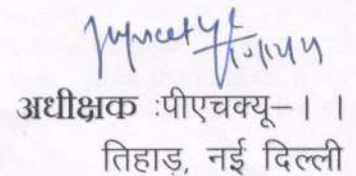 अधीक्षक :पीएचक्यू–।।
तिहाड़, नई दिल्ली